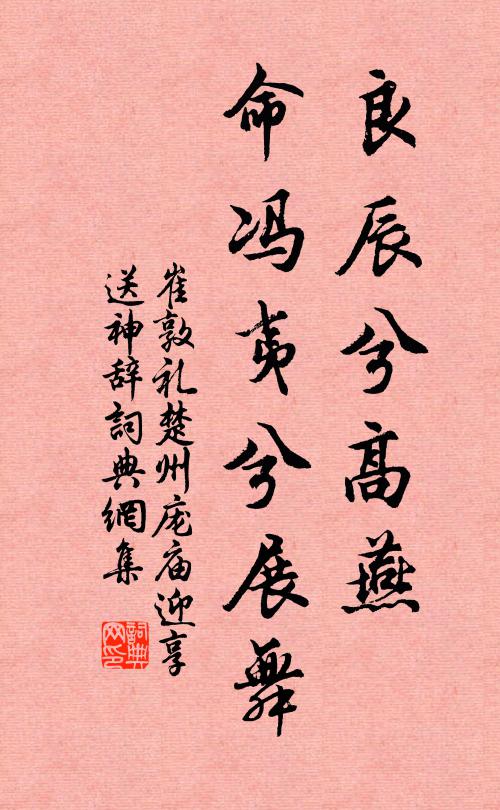 良辰兮高燕
命冯夷兮展舞
崔敦礼楚州庞庙迎享
送神辞詞典網集
詞典網印